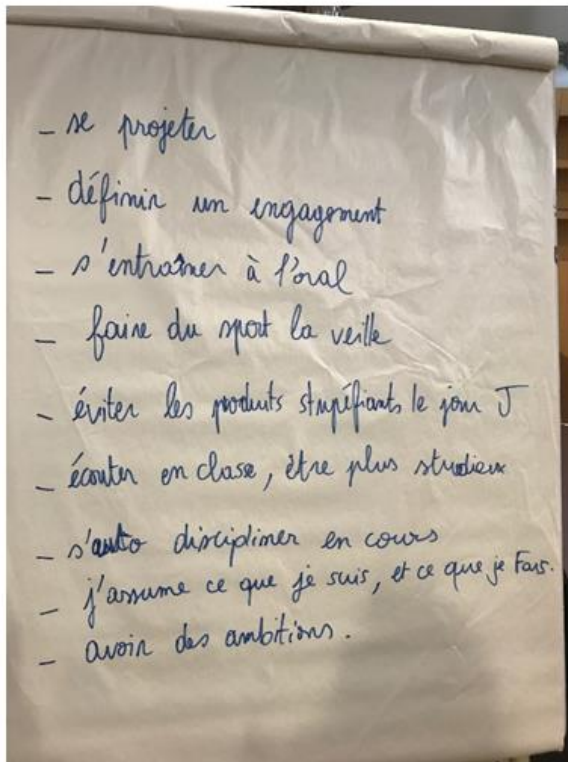 - se projeter
- définir un engagement
- s'entraîner à l'oral
- faire du sport la veille
- éviter les produits stupéfiants le jour J
- écouter en classe, être plus studieux
- s'auto discipliner en cours
- j'assume ce que je suis, et ce que je Fais.
- avoir des ambitions.